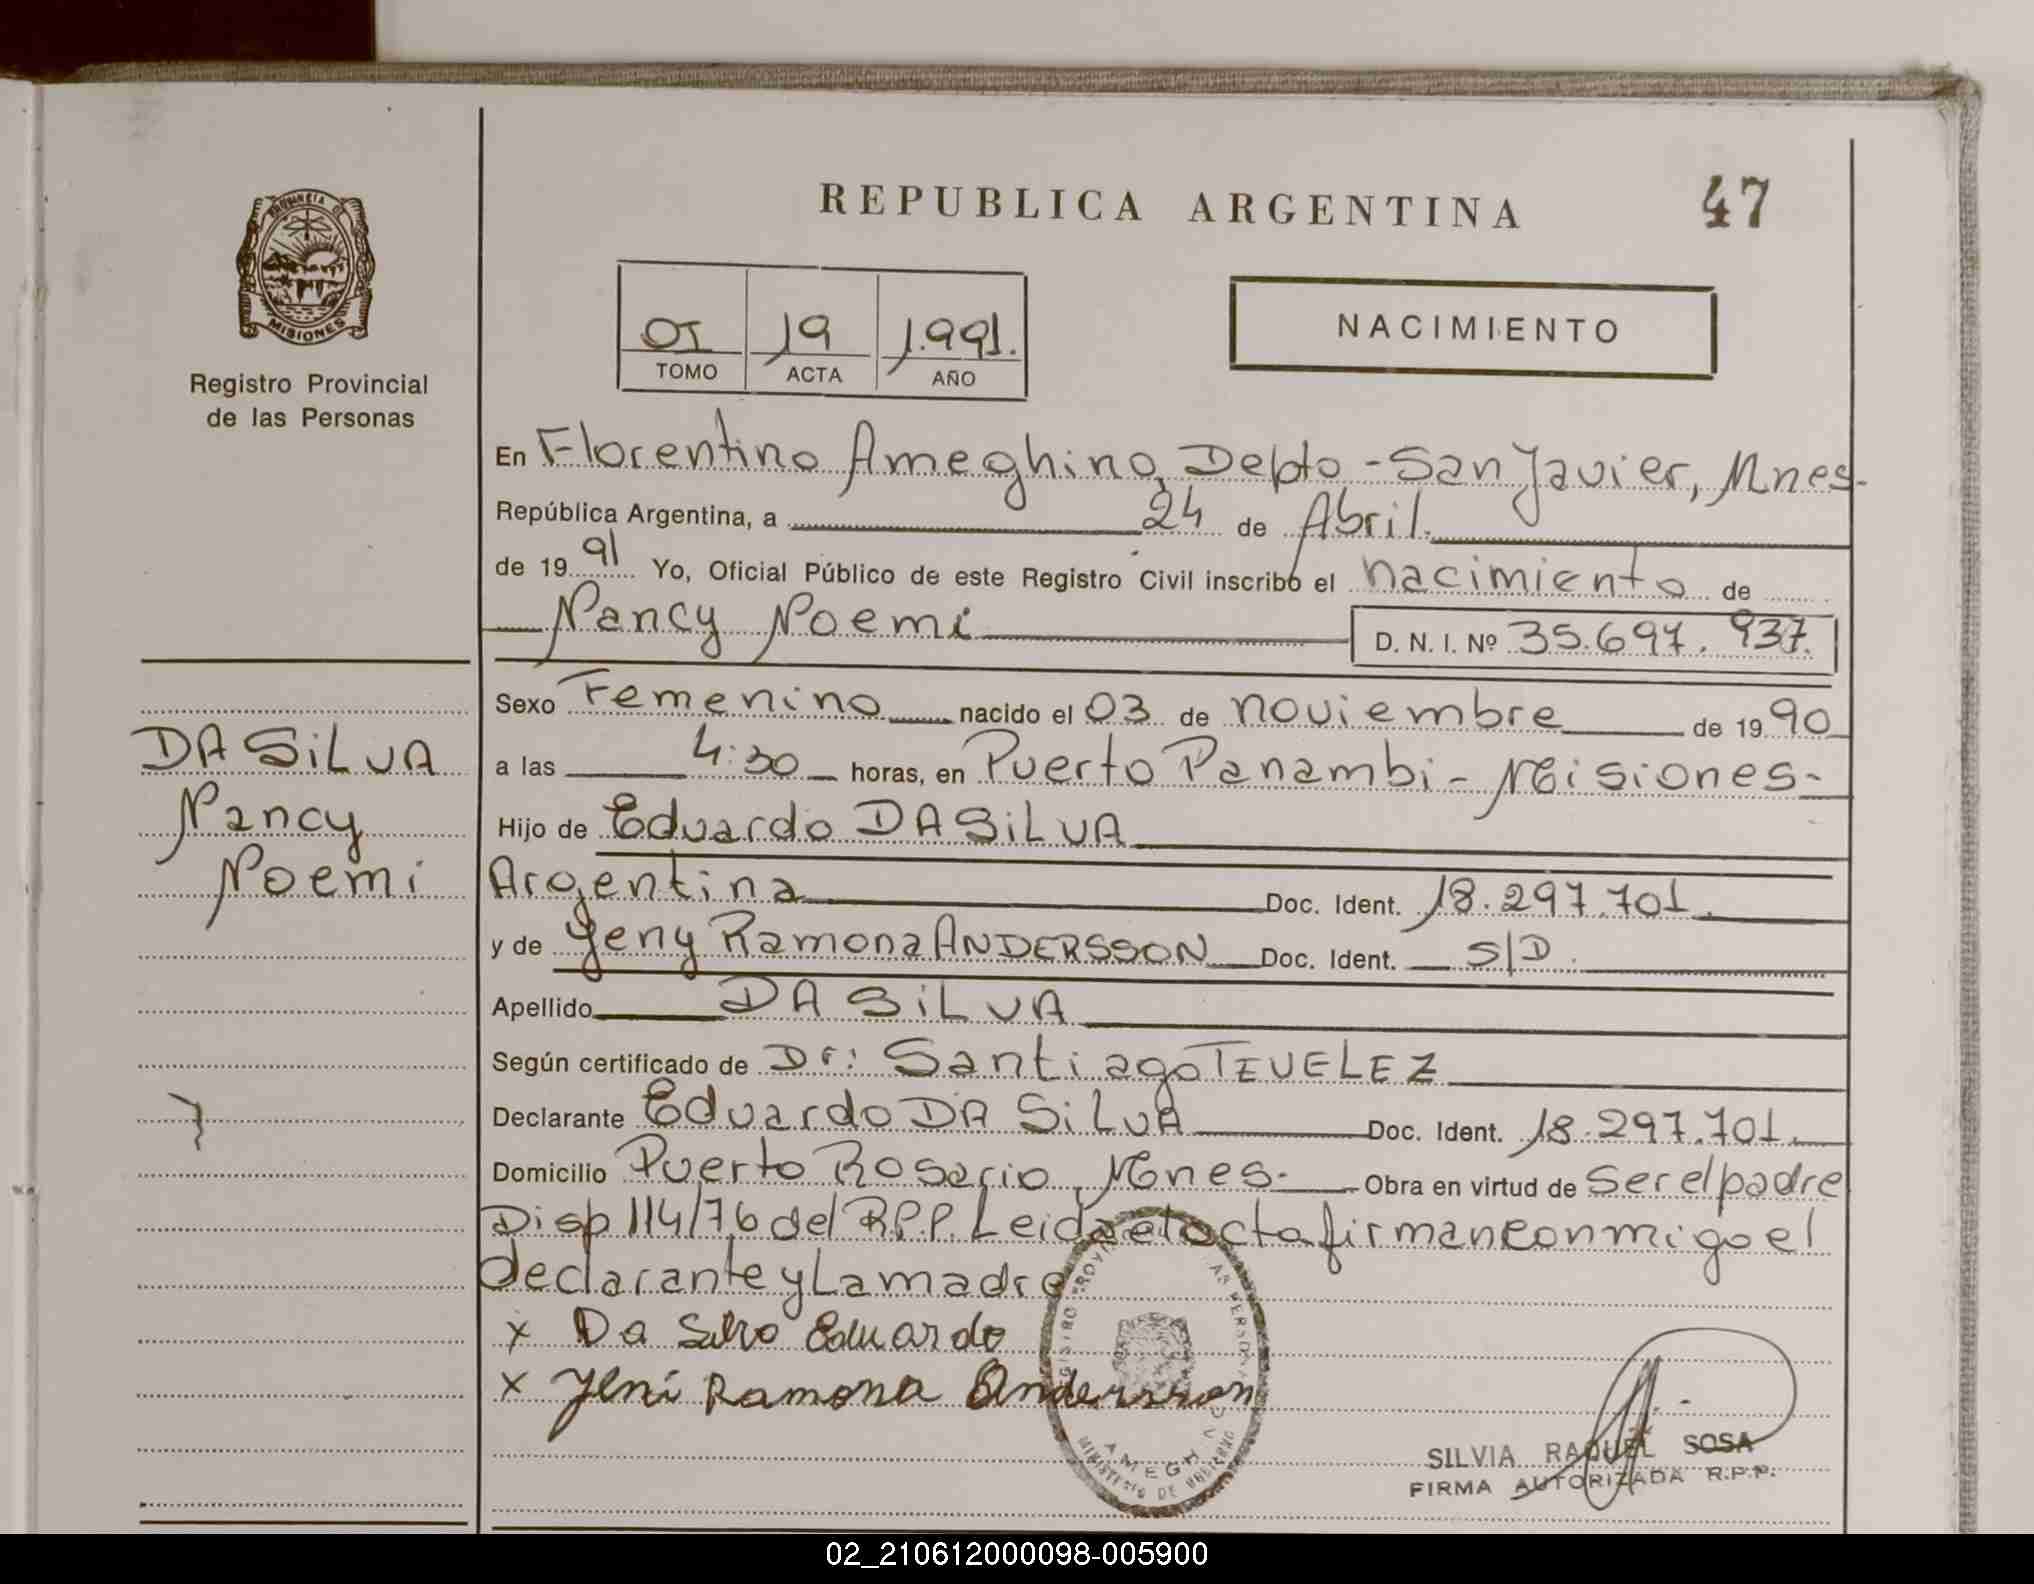 REPUBLICA ARGENTINA
47
PROVINCIA DE
MISIONES
Registro Provincial
de las Personas
01 19 1.991.
TOMO ACTA AÑO
NACIMIENTO
En Florentino Ameghino, Depto - San Javier, Mnes-
República Argentina, a 24 de Abril.
de 19 91 Yo, Oficial Público de este Registro Civil inscribo el nacimiento de
Nancy Noemi D. N. I. Nº 35.697.937.
Sexo Femenino nacido el 03 de noviembre de 19 90
a las 4:30 horas, en Puerto Panambi - Misiones-
Hijo de Eduardo DA SiLVA
Argentina Doc. Ident. 18.297.701.
y de Yeny Ramona ANDERSSON Doc. Ident. S/D.
Apellido DA SiLVA
Según certificado de Dr: Santiago TEVELEZ
Declarante Eduardo DA SiLVA Doc. Ident. 18.297.701.
Domicilio Puerto Rosario, Mnes- Obra en virtud de Ser el padre
Disp 114/76 del R.P.P. Leida el acta firman conmigo el
declarante y La madre
x Da Silva Eduardo
x Yeni Ramona Andersson
DA SiLVA
Nancy
Noemi
AMEGHINO
MINISTERIO DE GOBIERNO
SILVIA RAQUEL SOSA
FIRMA AUTORIZADA R.P.P.
02_210612000098-005900